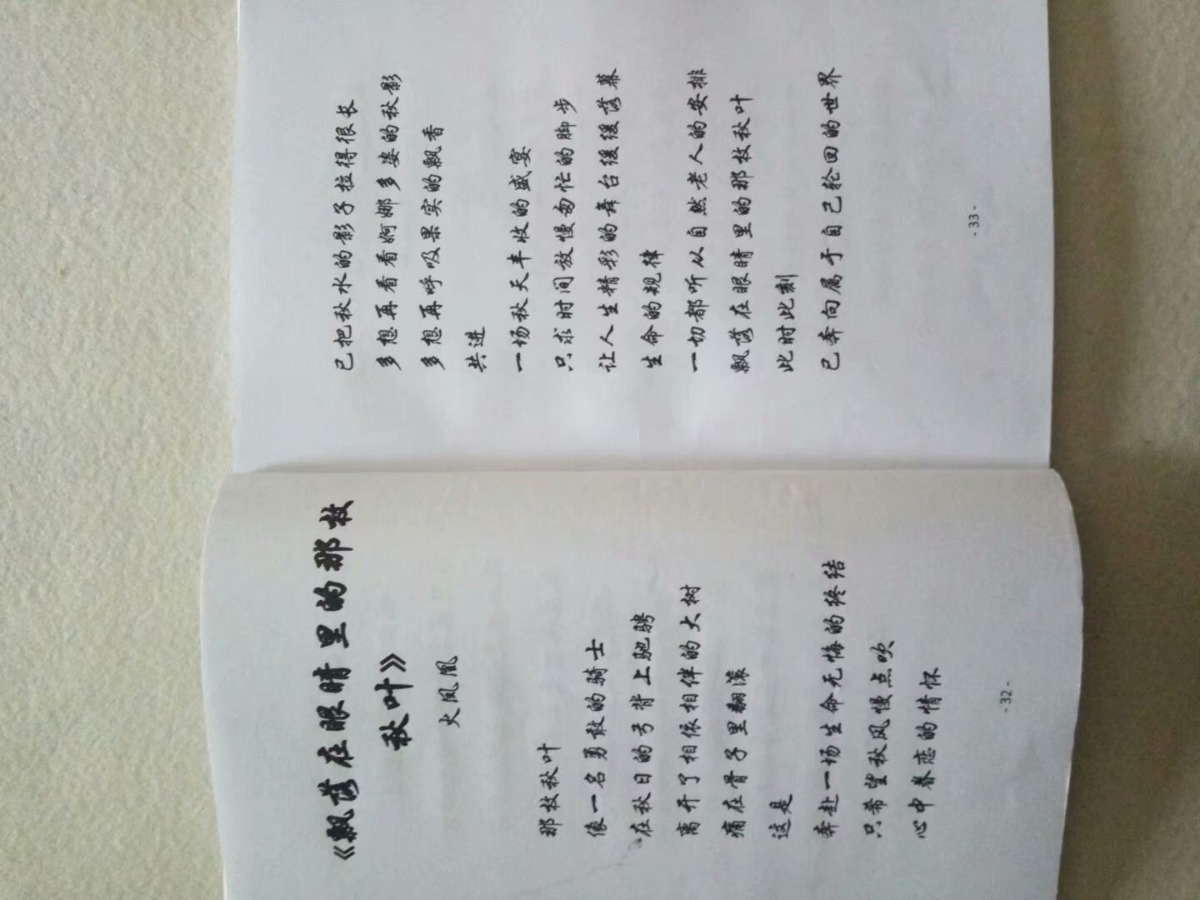 《飘落在眼睛里的那枚
秋叶》
火凤凰
那枚秋叶
像一名勇敢的骑士
在秋日的弓背上驰骋
离开了相依相伴的大树
痛在骨子里翻滚
这是
奔赴一场生命无悔的终结
只希望秋风慢点吹
心中眷恋的情怀
- 32 -
已把秋水的影子拉得很长
多想再看看婀娜多姿的秋影
多想再呼吸果实的飘香
共进
一场秋天丰收的盛宴
只求时间放慢匆忙的脚步
让人生精彩的舞台缓缓落幕
生命的规律
一切都听从自然老人的安排
飘落在眼睛里的那枚秋叶
此时此刻
已奔向属于自己轮回的世界
- 33 -